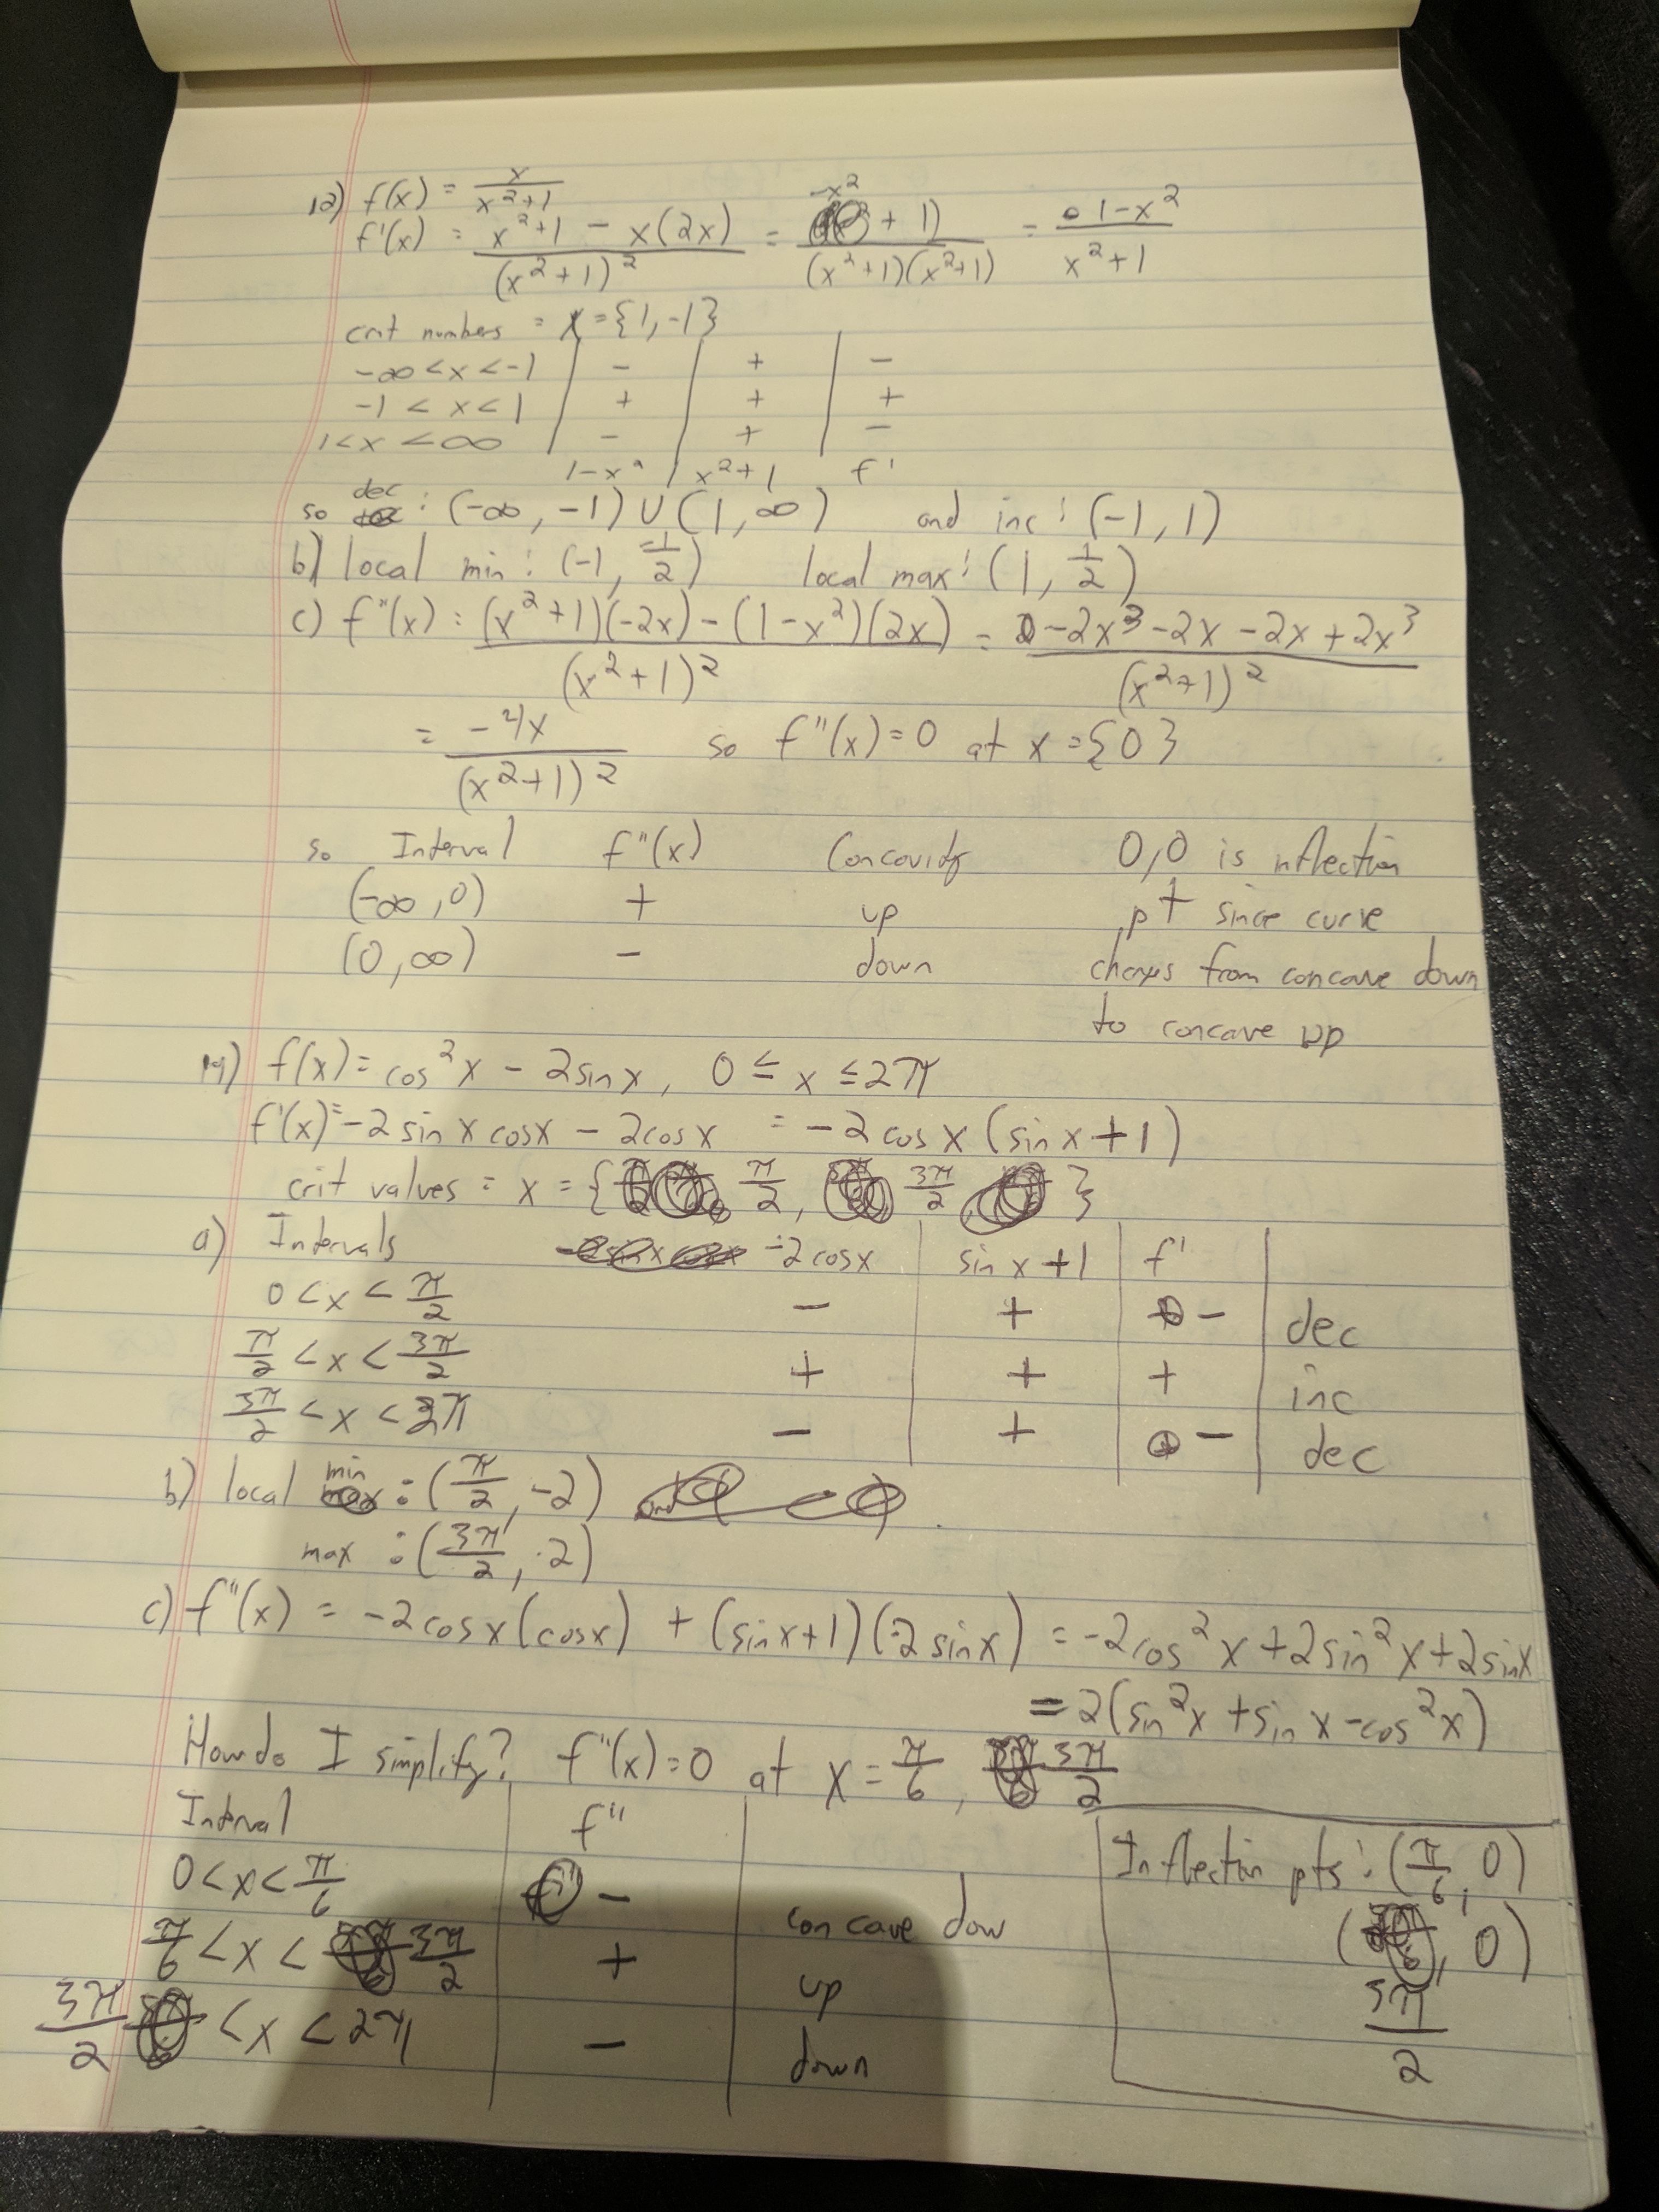 12) f(x) = x/(x²+1)
f'(x) = (x²+1 - x(2x))/(x²+1)² = (-x² + 1)/((x²+1)(x²+1)) = (1-x²)/(x²+1)
crit numbers = x = {1, -1}
-∞ < x < -1 | - | + | -
-1 < x < 1 | + | + | +
1 < x < ∞ | - | + | -
1-x² | x²+1 f'
so dec : (-∞, -1) ∪ (1, ∞) and inc : (-1, 1)
b) local min : (-1, -1/2) local max : (1, 1/2)
c) f''(x) : ((x²+1)(-2x) - (1-x²)(2x))/(x²+1)² = (-2x³ - 2x - 2x + 2x³)/(x²+1)²
= -4x/(x²+1)² so f''(x) = 0 at x = {0}
so Interval f''(x) Concavity 0,0 is inflection
(-∞, 0) + up pt since curve
(0, ∞) - down changes from concave down
to concave up
14) f(x) = cos²x - 2sinx, 0 ≤ x ≤ 2π
f'(x) = -2 sin x cosx - 2cosx = -2 cos x (sin x + 1)
crit values = x = { π/2, 3π/2 }
a) Intervals -2 cosx | sin x + 1 | f' |
0 < x < π/2 - | + | - | dec
π/2 < x < 3π/2 + | + | + | inc
3π/2 < x < 2π - | + | - | dec
b) local min : (π/2, -2)
max : (3π/2, 2)
c) f''(x) = -2 cos x (cosx) + (sinx+1)(2 sinx) = -2cos²x + 2sin²x + 2sinx
= 2(sin²x + sin x - cos²x)
How do I simplify? f''(x) = 0 at x = π/6, 3π/2
Interval | f'' |
0 < x < π/6 | - | concave dow
π/6 < x < 3π/2 | + | up
3π/2 < x < 2π | - | down
Inflection pts : (π/6, 0)
( , 0)
3π/2